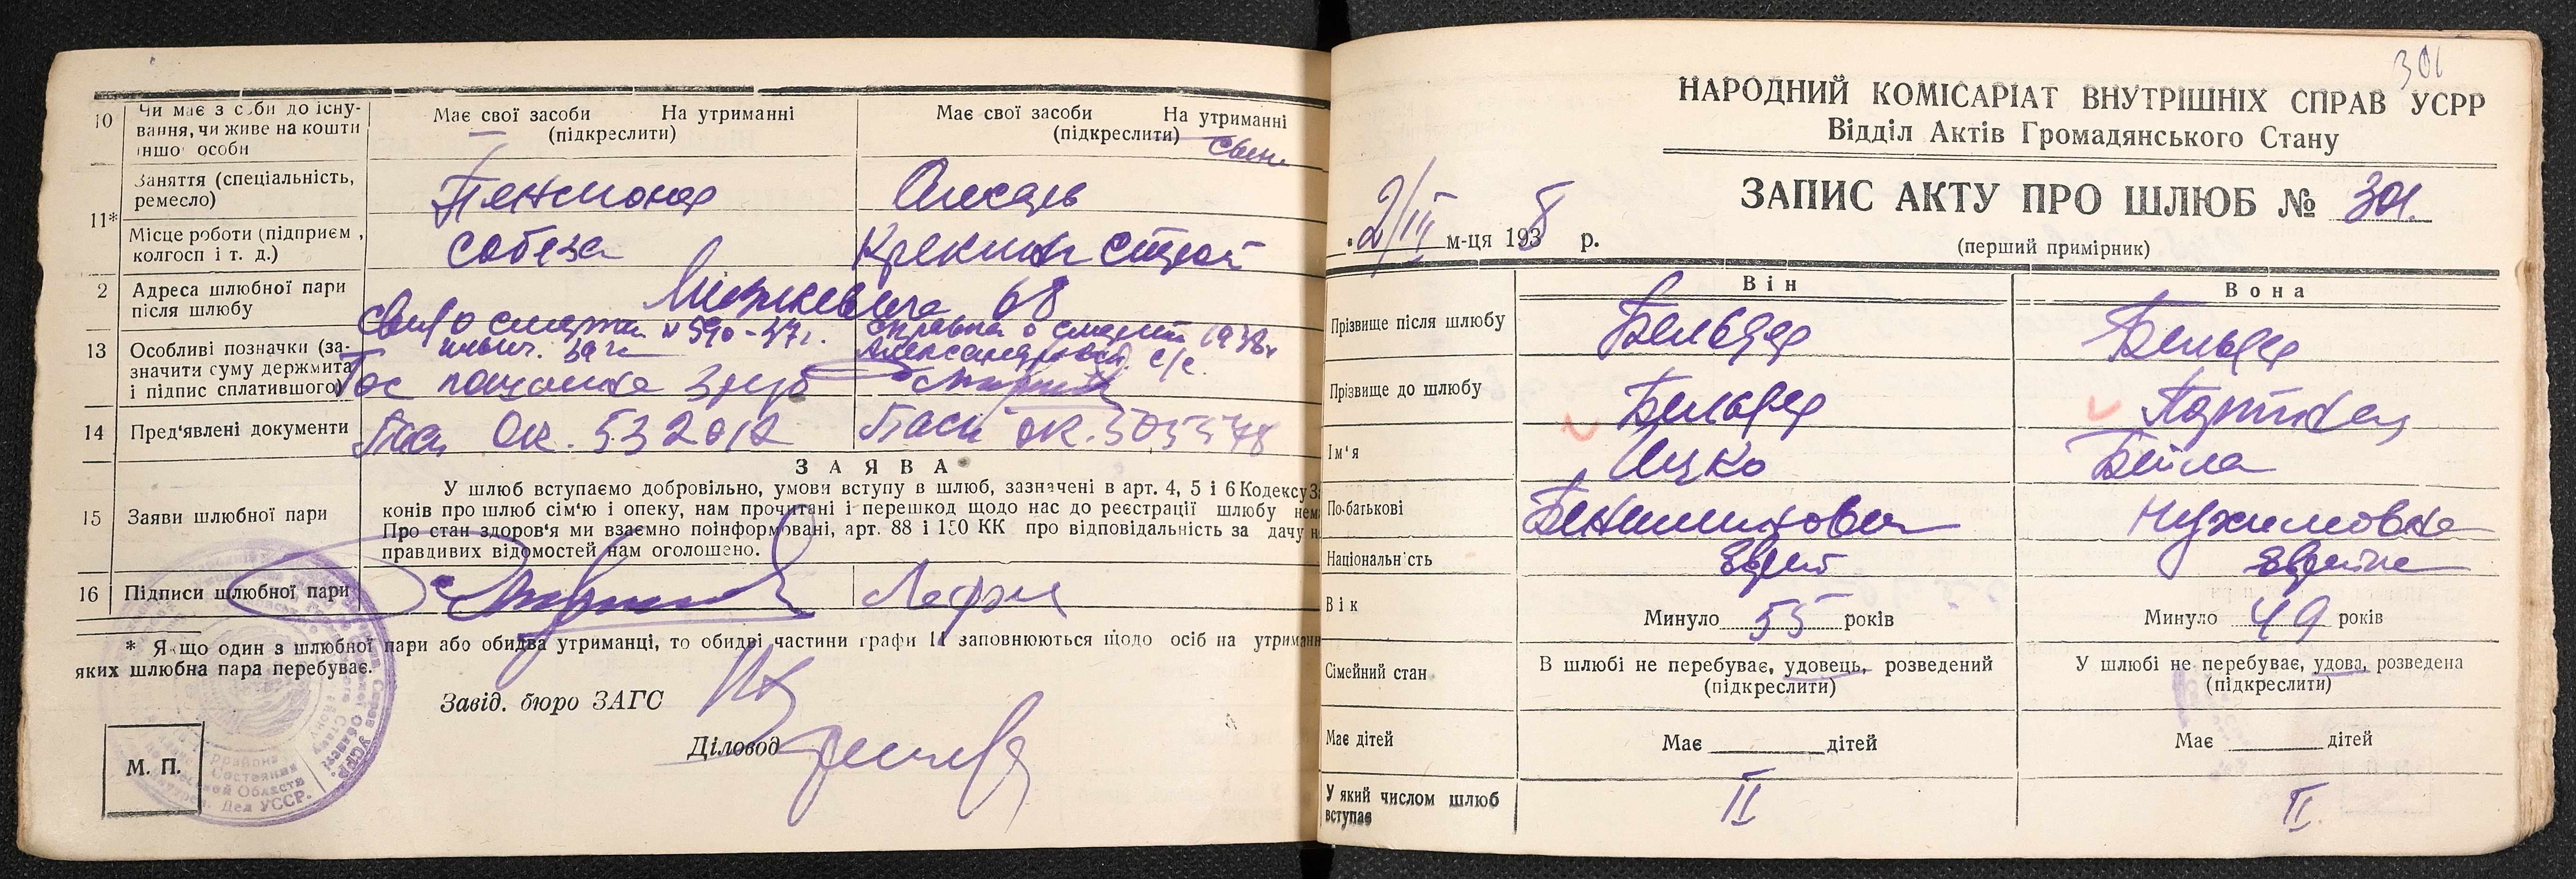 10
Чи має з с би до існу-
вання, чи живе на кошти
іншо особи
Має свої засоби На утриманні
(підкреслити)
Має свої засоби На утриманні
(підкреслити)
11*
Заняття (спеціальність,
ремесло)
Пенсионер
Місце роботи (підприєм ,
колгосп і т. д.)
собеза
2
Адреса шлюбної пари
після шлюбу
68
13
Особливі позначки (за-
значити суму держмита
і підпис сплатившого)
о смерти № 590-37г.
справка о смерти 1938г
с/с.
Гос пошлина 3 руб
14
Пред'явлені документи
Ок. 532012
Пасп ОК. 505578
ЗАЯВА
15
Заяви шлюбної пари
У шлюб вступаємо добровільно, умови вступу в шлюб, зазначені в арт. 4, 5 і 6 Кодексу
конів про шлюб сім'ю і опеку, нам прочитані і перешкод щодо нас до реєстрації шлюбу
Про стан здоров'я ми взаємно поінформовані, арт. 88 і 150 КК про відповідальність за дачу
правдивих відомостей нам оголошено.
16
Підписи шлюбної пари
* Якщо один з шлюбної пари або обидва утриманці, то обидві частини графи 11 заповнюються щодо осіб на
яких шлюбна пара перебуває.
Завід. бюро ЗАГС
Діловод
М. П.
301
НАРОДНИЙ КОМІСАРІАТ ВНУТРІШНІХ СПРАВ УСРР
Відділ Актів Громадянського Стану
ЗАПИС АКТУ ПРО ШЛЮБ № 301.
2/III м-ця 1938 р.
(перший примірник)
Він
Вона
Прізвище після шлюбу
Бельфер
Бельфер
Прізвище до шлюбу
Бельфер
Ім'я
Ицко
Бейла
По-батькові
Бениминович
Нухимовна
Національн'сть
Еврей
Еврейка
Вік
Минуло 55 років
Минуло 49 років
Сімейний стан
В шлюбі не перебуває, удовець, розведений
(підкреслити)
У шлюбі не перебуває, удова, розведена
(підкреслити)
Має дітей
Має дітей
Має дітей
У який числом шлюб
вступає
II
II